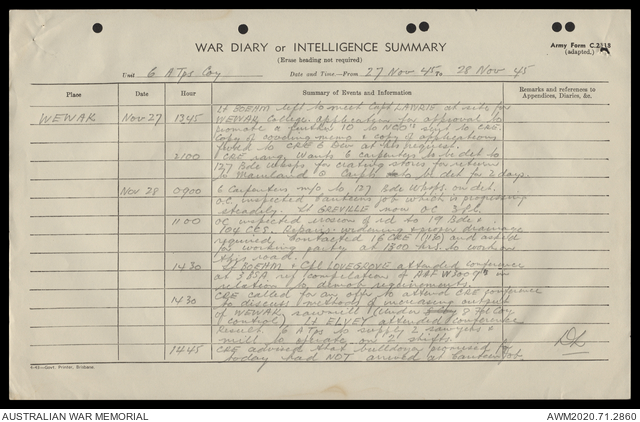 WAR DIARY or INTELLIGENCE SUMMARY
Army Form C.2118
(adapted.)
(Erase heading not required)
Unit 6 A Tps Coy Date and Time—From 27 Nov 45 To 28 Nov 45
Place Date Hour Summary of Events and Information Remarks and references to
Appendices, Diaries, &c.
WEWAK Nov 27 1345 Lt BOEHM left to meet Capt LAWRIE at site for
WEWAK College. Application for approval to
promote a further 10 to NCO's sent to CRE.
Copy of memo & copy of applications
to CRE 6 Div at his request.
2100 CRE rang. Wants 6 carpenters to be det to
127 Bde Wksps for crating stores for return
to Mainland. 6 Carps to be det for 2 days.
Nov 28 0900 6 Carpenters m/o to 127 Bde Wksps on det.
O.C. inspected canteens job which is progressing
steadily. Lt GREVILLE now OC 3 Pl.
1100 OC inspected erosion of rd to 19 Bde &
104 CCS. Repairs widening & proper drainage
required. Contacted 16 CRE and
for working party at 1300 hrs. to work on
this road.
1430 Lt BOEHM & Cpl LOVEGROVE attended conference
at 3 BSA ref compilation of AAF W3009's in
relation to demob requirements.
1430 CRE called for an offr to attend CRE conference
to discuss methods of increasing output
of WEWAK sawmill (Under 8 Fd Coy
control) Lt ELVEY attended conference
Result. 6 A Tps to supply 2 sawyers &
mill to operate on 2 shifts.
1445 CRE advised that bulldozer promised for
today had NOT arrived at canteen job.
8-43—Govt. Printer, Brisbane.
AUSTRALIAN WAR MEMORIAL AWM2020.71.2860